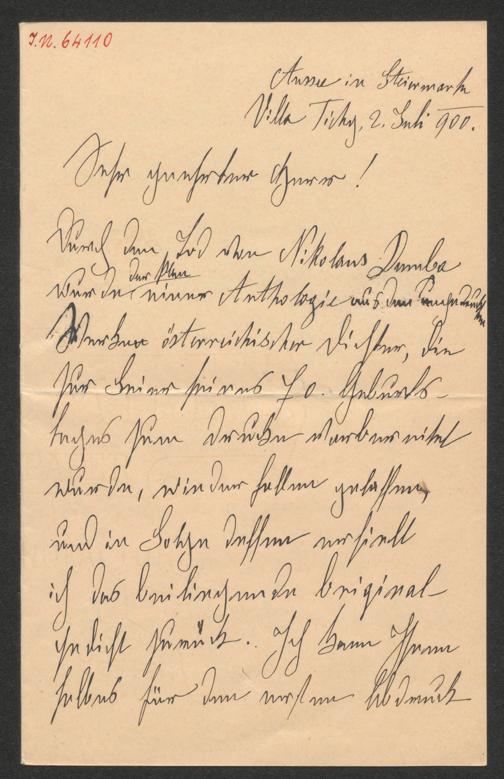 J.N. 64110
Aussee in Steiermark
Villa Tichy, 2. Juli 900.
Sehr geehrter Herr!
Durch den Tod von Nikolaus Dumba
wurde der Plan einer Anthologie aus den
Werken österreichischer Dichter, die
zur Feier seines 70. Geburts-
tages zum Drucke vorbereitet
wurde, wieder fallen gelassen,
und in Folge dessen erhielt
ich das beiliegende Original-
gedicht zurück. Ich kann Ihnen
selbes für den ersten Abdruck